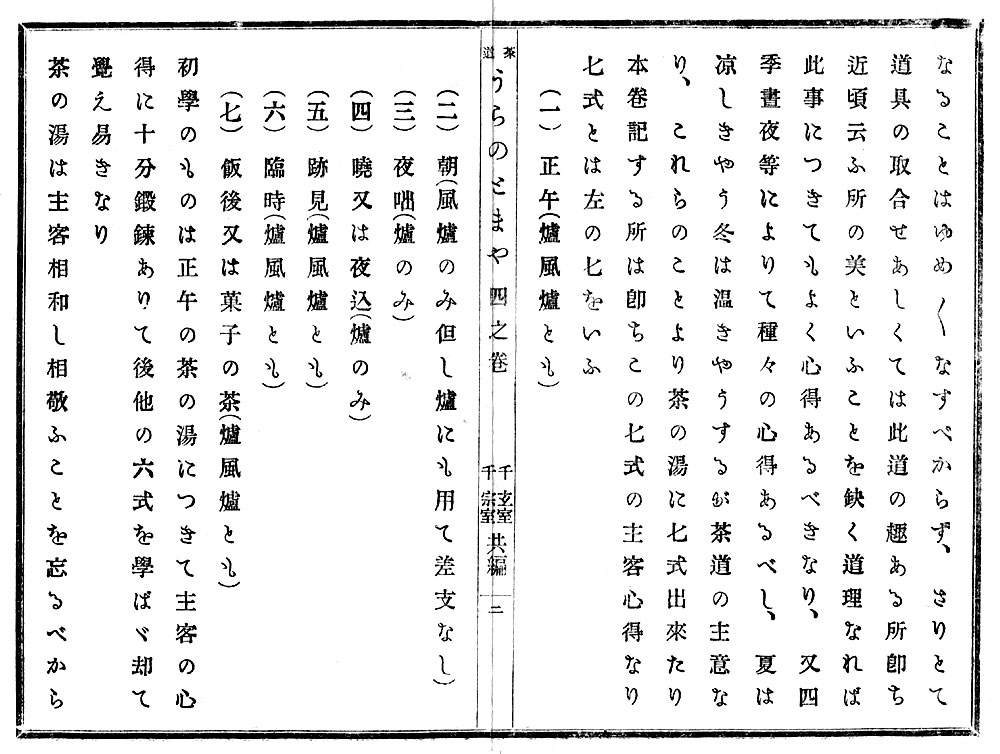 なることはゆめ〱なすべからず、さりとて
道具の取合せあしくては此道の趣ある所卽ち
近頃云ふ所の美といふことを缺く道理なれば
此事につきてもよく心得あるべきなり、又四
季晝夜等によりて種々の心得あるべし、夏は
凉しきやう冬は温きやうするが茶道の主意な
り、これらのことより茶の湯に七式出來たり
本卷記する所は卽ちこの七式の主客心得なり
七式とは左の七をいふ
(一)正午(爐風爐とも)
茶道うらのとまや 四之卷 千玄室 千宗室 共編 二
(二)朝(風爐のみ但し爐にも用て差支なし)
(三)夜咄(爐のみ)
(四)曉又は夜込(爐のみ)
(五)跡見(爐風爐とも)
(六)臨時(爐風爐とも)
(七)飯後又は菓子の茶(爐風爐とも)
初學のものは正午の茶の湯につきて主客の心
得に十分鍛鍊ありて後他の六式を學ばゞ却て
覺え易きなり
茶の湯は主客相和し相敬ふことを忘るべから